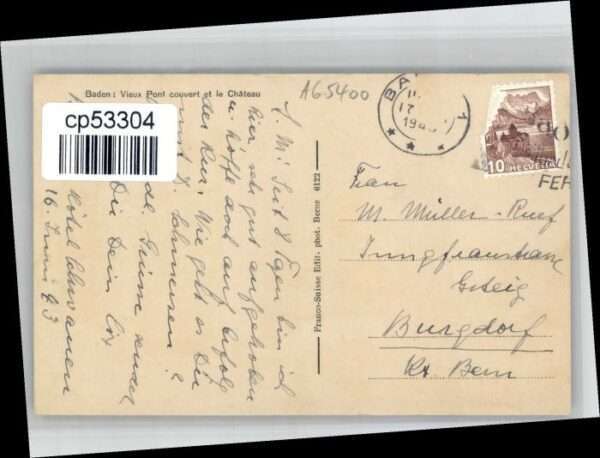 Baden: Vieux Pont couvert et le Château
A65400
cp53304
BA
1
17.
HELVETIA
10
FER
L. M! Seit 8 Tagen bin ich
hier sehr gut aufgehoben
u. hoffe auch auf Erfolg
der Kur. Wie geht es Dir
mit d. Schmerzen?
Grüsse sendet
Dir Dein
Hôtel Schwanen
16. Juni 43
Franco-Suisse Edit. phot. Berne 6122
Frau
M. Müller-Ruef
Jungfraustrasse
Gsteig
Burgdorf
Kt. Bern